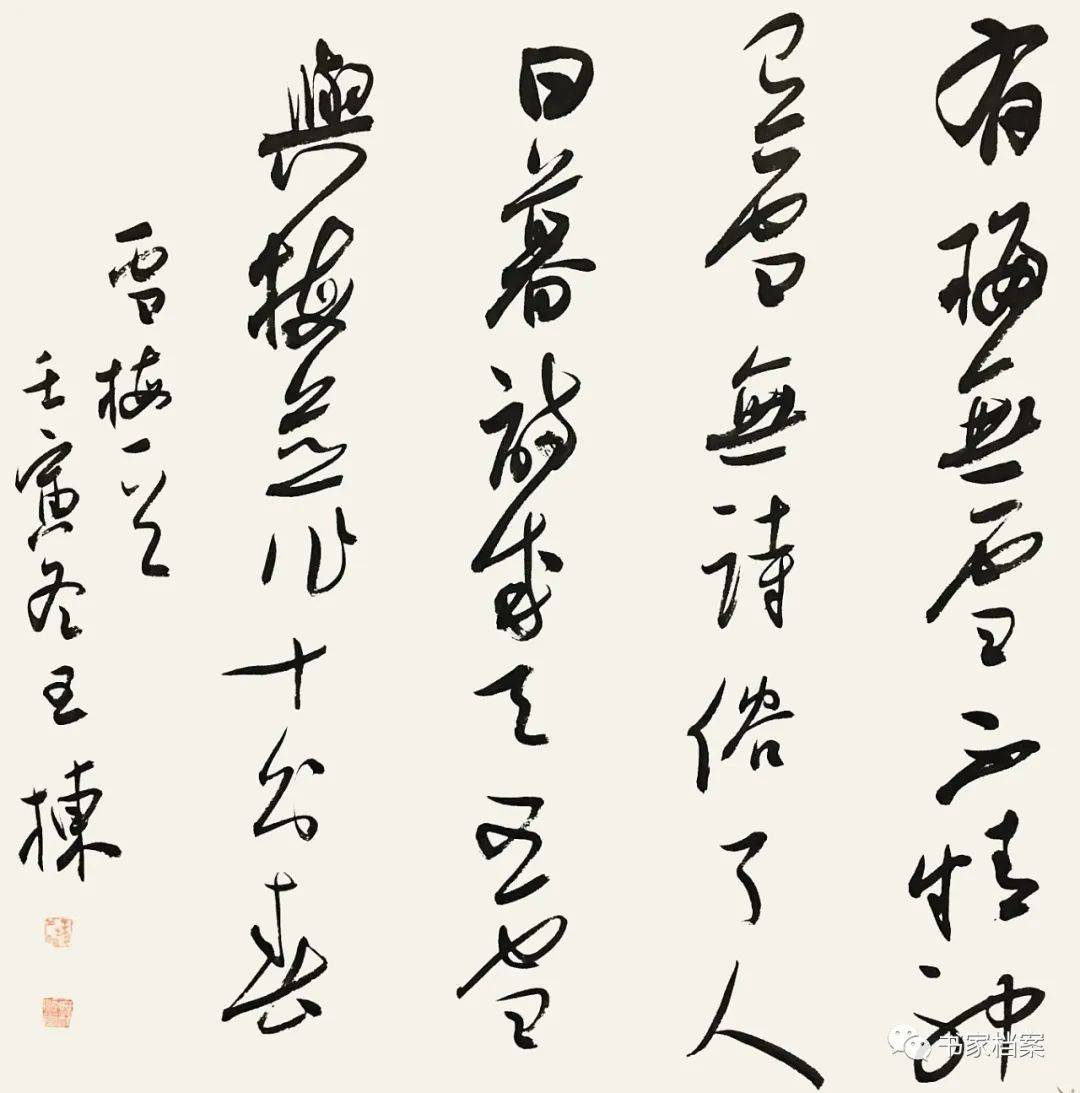 有梅無雪不精神
有雪無詩俗了人
日暮詩成天又雪
與梅並作十分春
雪梅一首
壬寅冬王棟
书家档案